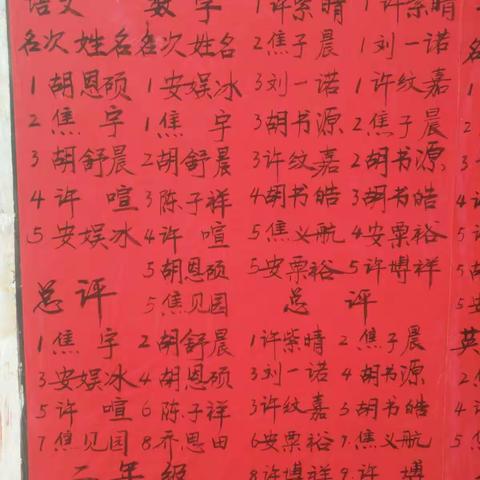 语文 数学
名次 姓名 名次 姓名
1 胡恩硕 1 安娱冰
2 焦宇 1 焦宇
3 胡舒晨 2 胡舒晨
4 许喧 3 陈子祥
5 安娱冰 4 许喧
5 胡恩硕
5 焦见园
总评
1 焦宇 2 胡舒晨
3 安娱冰 4 胡恩硕
5 许喧 6 陈子祥
7 焦见园 8 乔恩田
二年级
1 许紫晴 1 许紫晴
2 焦子晨 1 刘一诺
3 刘一诺 1 许纹嘉
3 胡书源 2 焦子晨
3 许纹嘉 2 胡书源
4 胡书皓 3 胡书皓
5 焦义航 4 安栗裕
5 安栗裕 5 许博祥
总评
1 许紫晴 2 焦子晨
3 刘一诺 4 胡书源
3 许纹嘉 5 胡书皓
6 安栗裕 7 焦义航
8 许博祥 9 许博
英